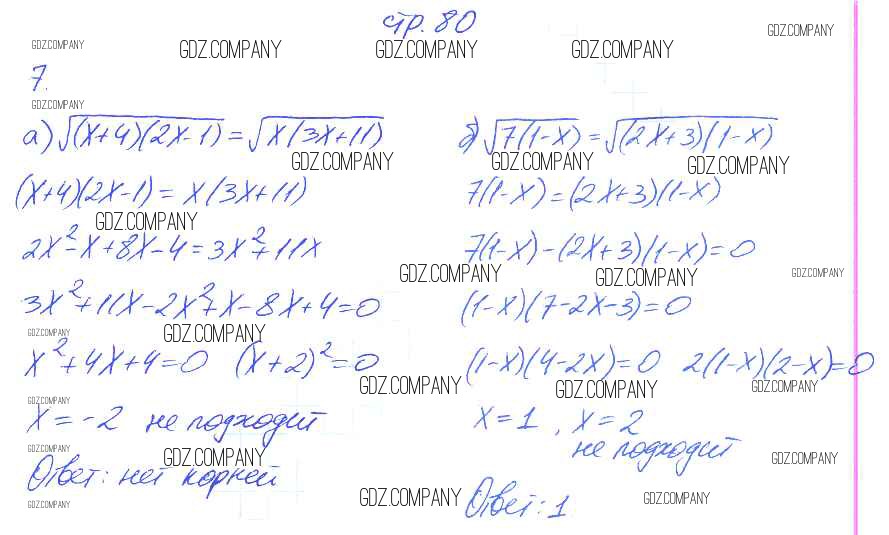 стр. 80
GDZ.COMPANY GDZ.COMPANY GDZ.COMPANY GDZ.COMPANY GDZ.COMPANY
7.
GDZ.COMPANY
а) √(x+4)(2x-1) = √x(3x+11)
GDZ.COMPANY
(x+4)(2x-1) = x(3x+11)
GDZ.COMPANY
2x²-x+8x-4=3x²+11x
GDZ.COMPANY
3x²+11x-2x²+x-8x+4=0
GDZ.COMPANY GDZ.COMPANY
x²+4x+4=0 (x+2)²=0
GDZ.COMPANY
GDZ.COMPANY
x=-2 не подходит
GDZ.COMPANY GDZ.COMPANY
Ответ: нет корней
GDZ.COMPANY GDZ.COMPANY
б) √7(1-x) = √(2x+3)(1-x)
GDZ.COMPANY GDZ.COMPANY
7(1-x)=(2x+3)(1-x)
7(1-x)-(2x+3)(1-x)=0
GDZ.COMPANY GDZ.COMPANY
(1-x)(7-2x-3)=0
(1-x)(4-2x)=0 2(1-x)(2-x)=0
GDZ.COMPANY GDZ.COMPANY
x=1, x=2
не подходит
GDZ.COMPANY
Ответ: 1
GDZ.COMPANY